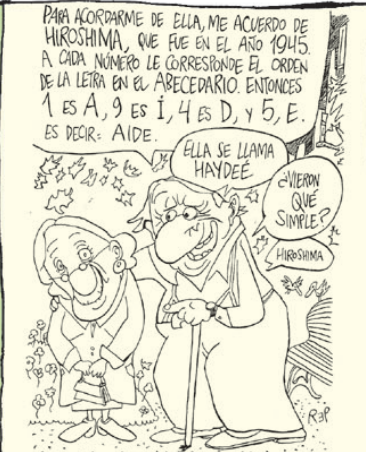 PARA ACORDARME DE ELLA, ME ACUERDO DE
HIROSHIMA, QUE FUE EN EL AÑO 1945.
A CADA NÚMERO LE CORRESPONDE EL ORDEN
DE LA LETRA EN EL ABECEDARIO. ENTONCES
1 ES A, 9 ES I, 4 ES D, Y 5, E.
ES DECIR: AIDE.
ELLA SE LLAMA
HAYDEÉ.
¿VIERON
QUÉ
SIMPLE?
HIROSHIMA
REP